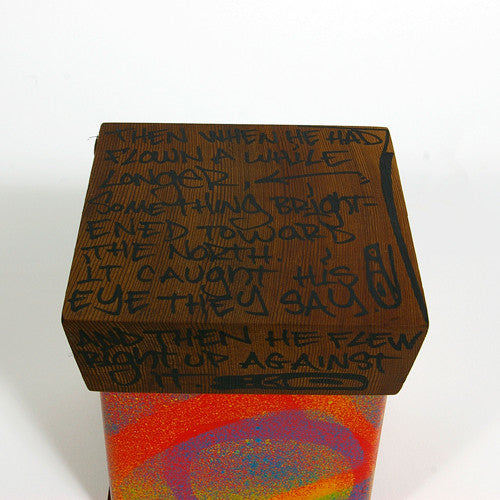 THEN WHEN HE HAD
FLOWN A WHILE
LONGER,
SOMETHING BRIGHT-
ENED TOWARD
THE NORTH.
IT CAUGHT HIS
EYE THEY SAY.
AND THEN HE FLEW
RIGHT UP AGAINST
IT.